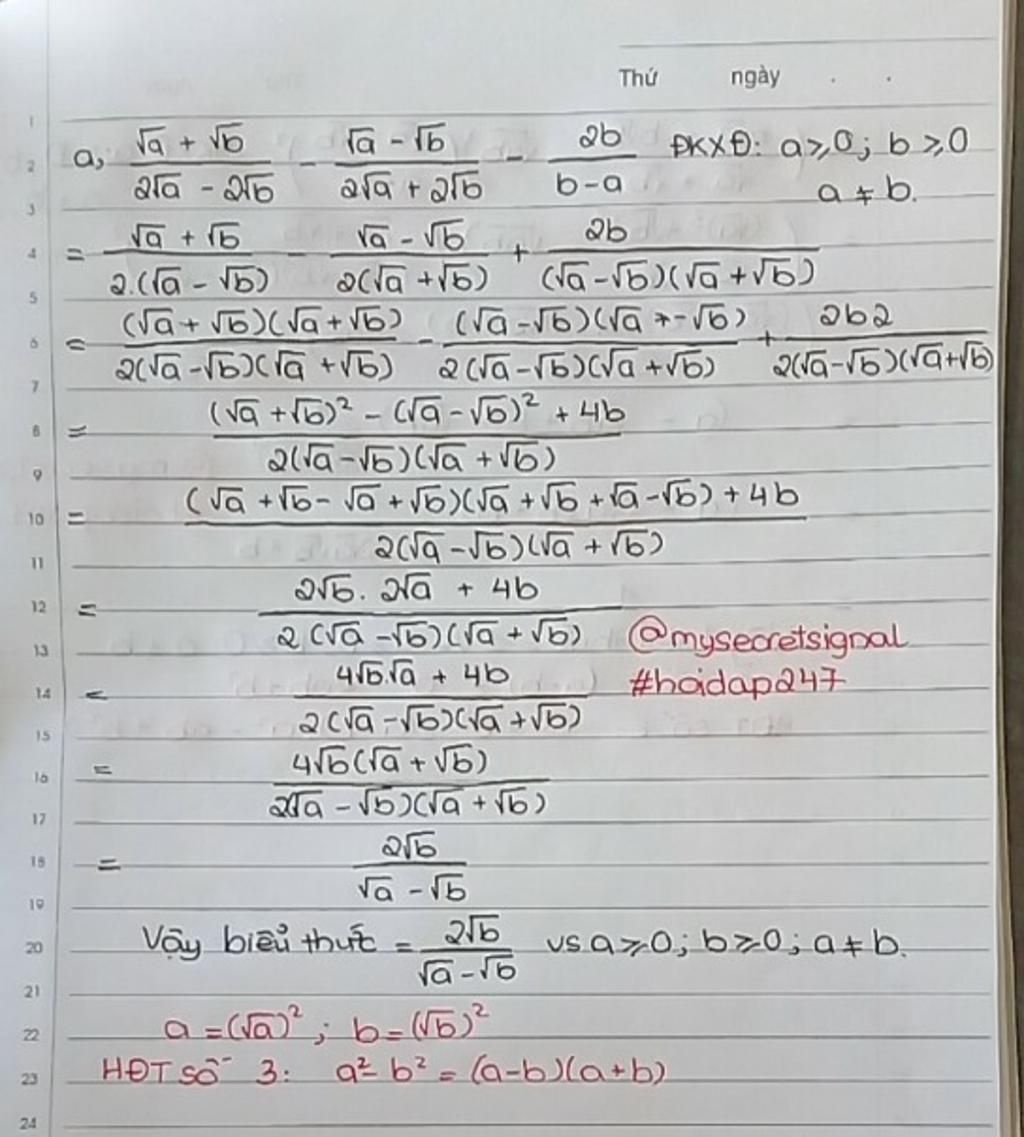 Thứ ngày . .
1
2 a, (√a + √b)/(2√a - 2√b) - (√a - √b)/(2√a + 2√b) - 2b/(b-a) ĐKXĐ: a≥0; b≥0
3 a ≠ b.
4 = (√a + √b)/(2.(√a - √b)) - (√a - √b)/(2(√a + √b)) + 2b/((√a-√b)(√a + √b))
5
6 = (√a + √b)(√a + √b)/(2(√a-√b)(√a + √b)) - (√a-√b)(√a - √b)/(2(√a-√b)(√a + √b)) + 2b2/(2(√a-√b)(√a+√b))
7
8 = ((√a + √b)² - (√a - √b)² + 4b)/(2(√a-√b)(√a + √b))
9
10 = ((√a + √b - √a + √b)(√a + √b + √a - √b) + 4b)/(2(√a-√b)(√a + √b))
11
12 = (2√b. 2√a + 4b)/(2(√a-√b)(√a + √b))
13 @mysecretsignal
14 = (4√b.√a + 4b)/(2(√a-√b)(√a + √b)) #hoidap247
15
16 = 4√b(√a + √b)/(2(√a-√b)(√a + √b))
17
18 = 2√b/(√a - √b)
19
20 Vậy biểu thức = 2√b/(√a-√b) vs a≥0; b≥0; a ≠ b.
21
22 a = (√a)²; b = (√b)²
23 HĐT số 3: a²- b² = (a-b)(a+b)
24